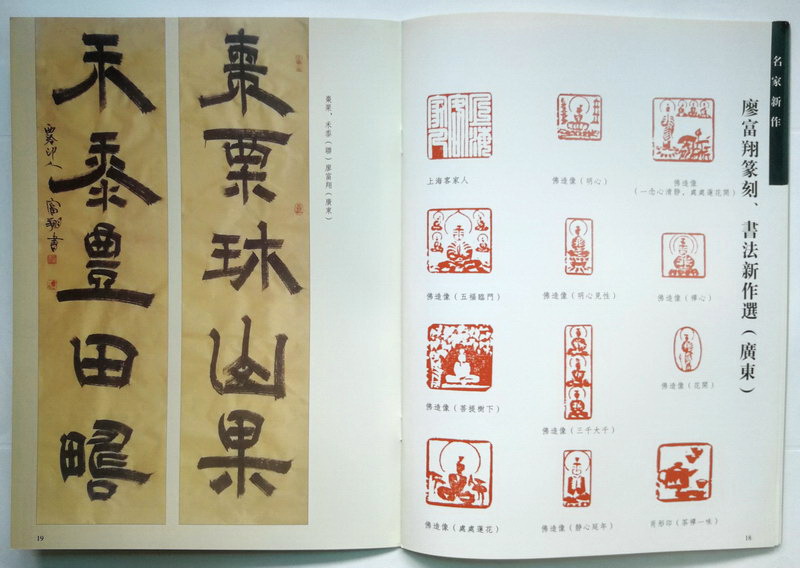 名家新作
廖富翔篆刻、書法新作選(廣東)
上海客家人
佛造像(明心)
佛造像
(一念心清靜,處處蓮花開)
佛造像(五福臨門)
佛造像(明心見性)
佛造像(禪心)
佛造像(菩提樹下)
佛造像(三千大千)
佛造像(花開)
佛造像(處處蓮花)
佛造像(靜心延年)
肖形印(茶禪一味)
16
棗栗、禾黍(聯)廖富翔(廣東)
棗栗球山果
禾黍豐田
富翔書
19